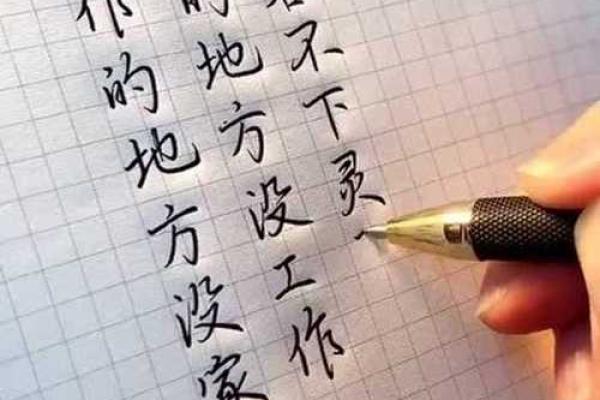 不下灵
的地方没工作
作的地方没家